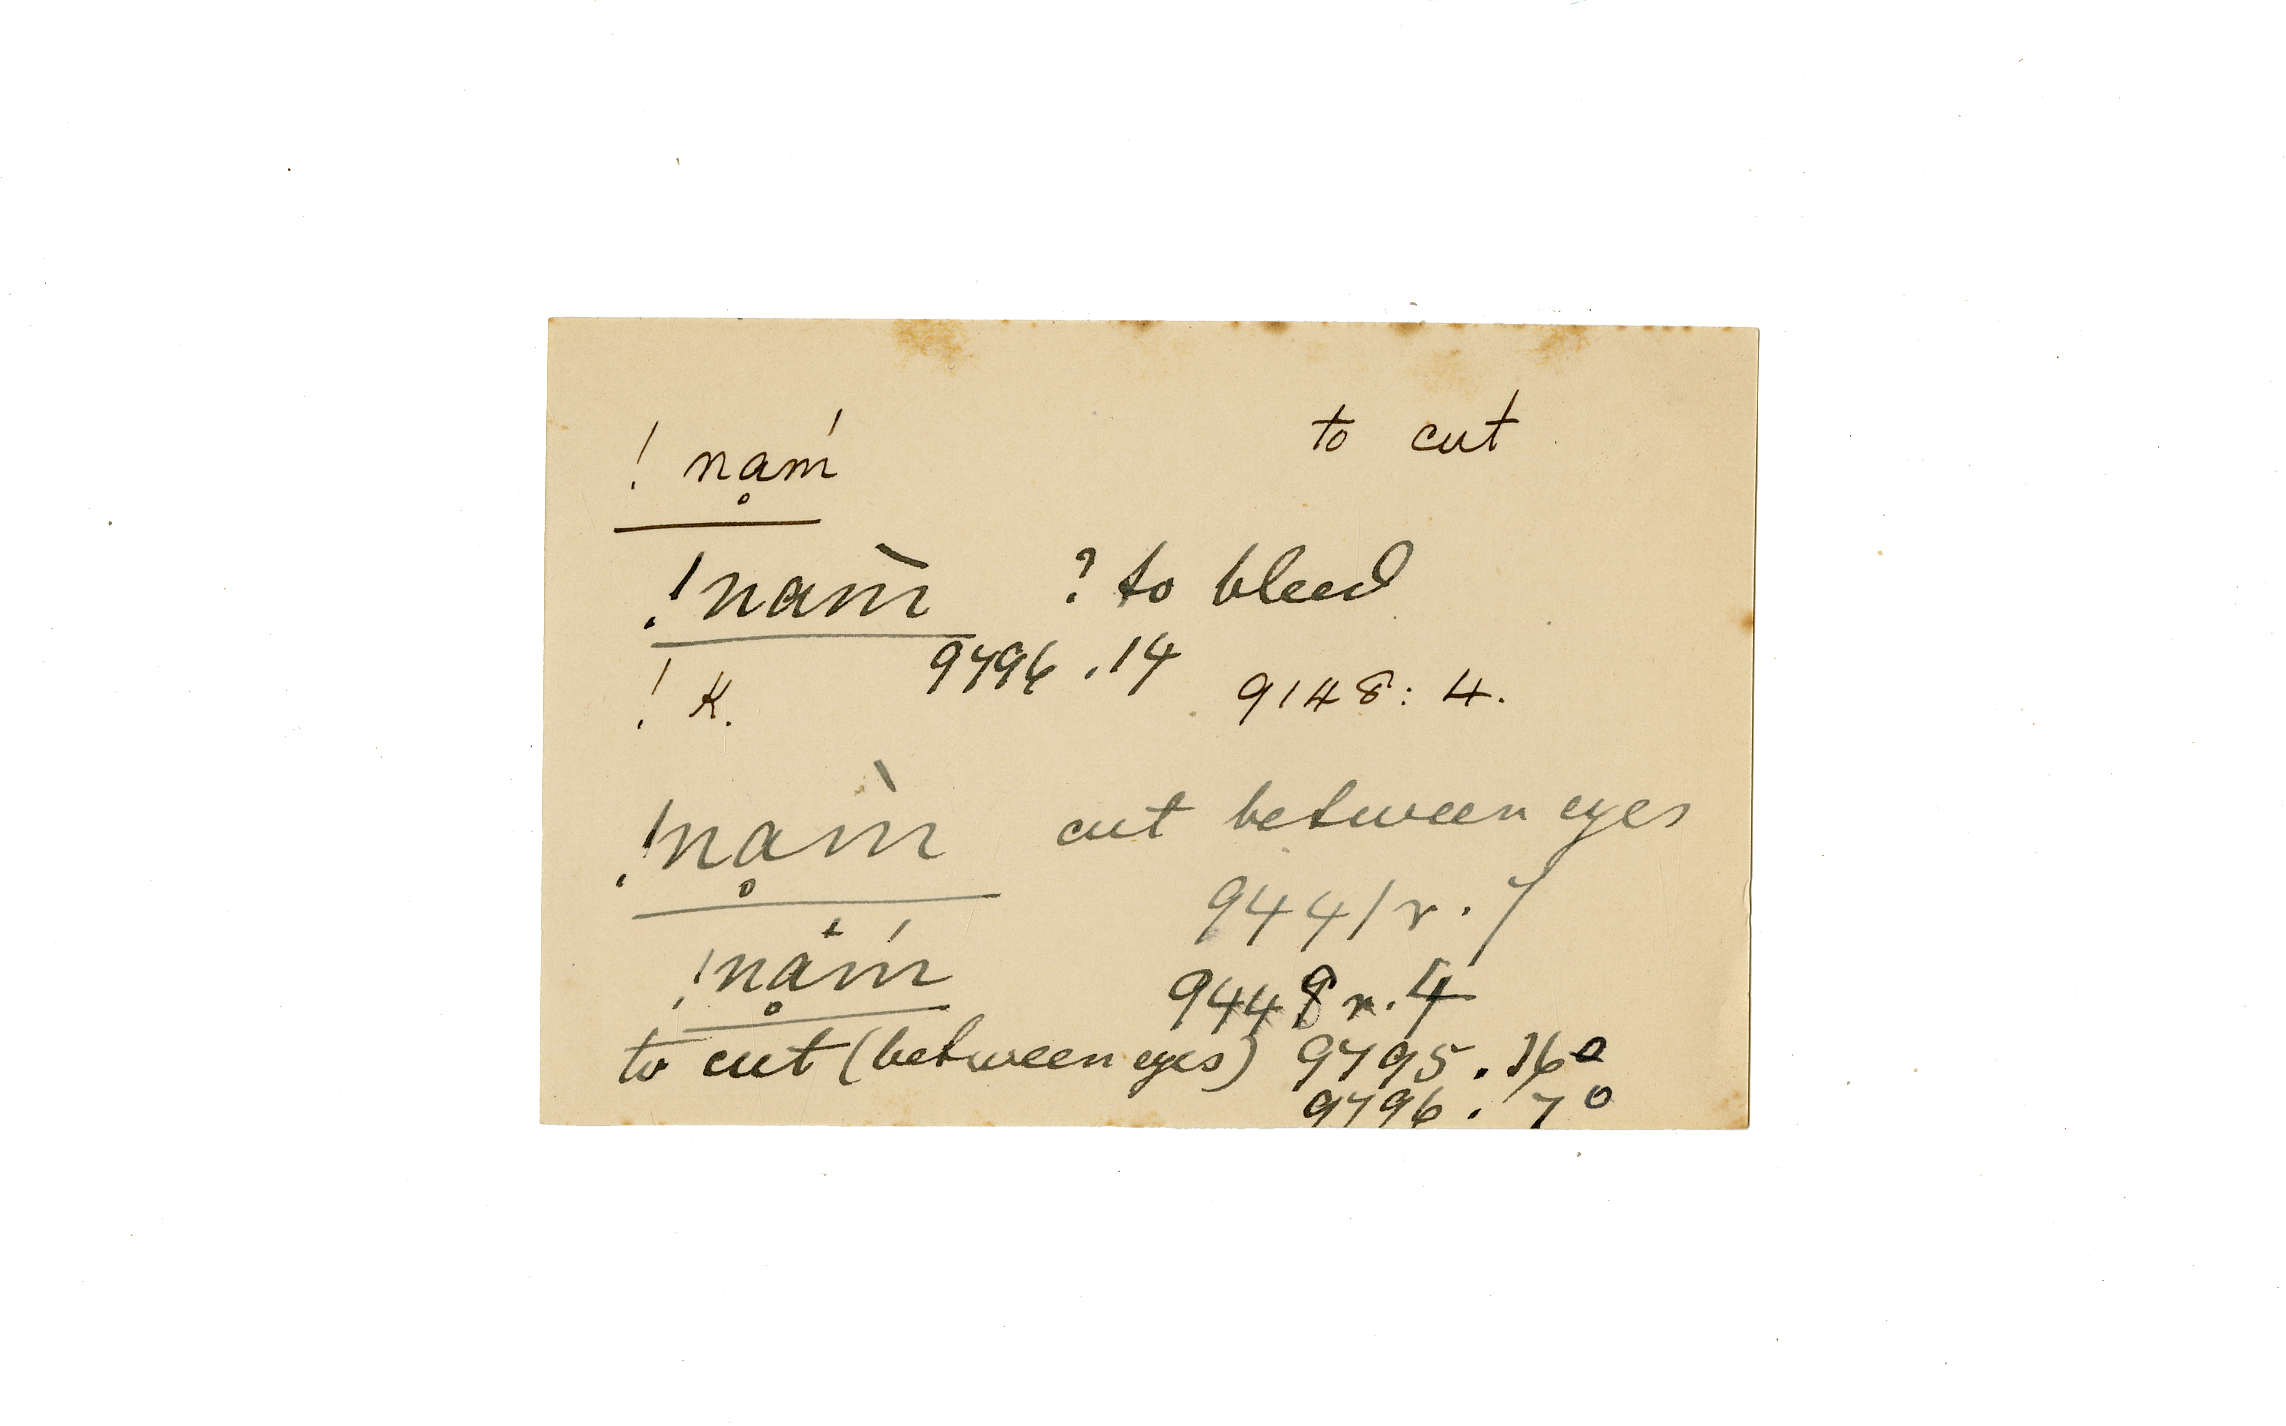 ! nạḿ̥ to cut
!nam̀ ? to bleed
9796 . 14
! K. 9148: 4.
!nḁm̀ cut between eyes
9441 r. 7
!nḁ̇ḿ 9448 r. 4
to cut (between eyes) 9795 . 16º
9796 . 7º